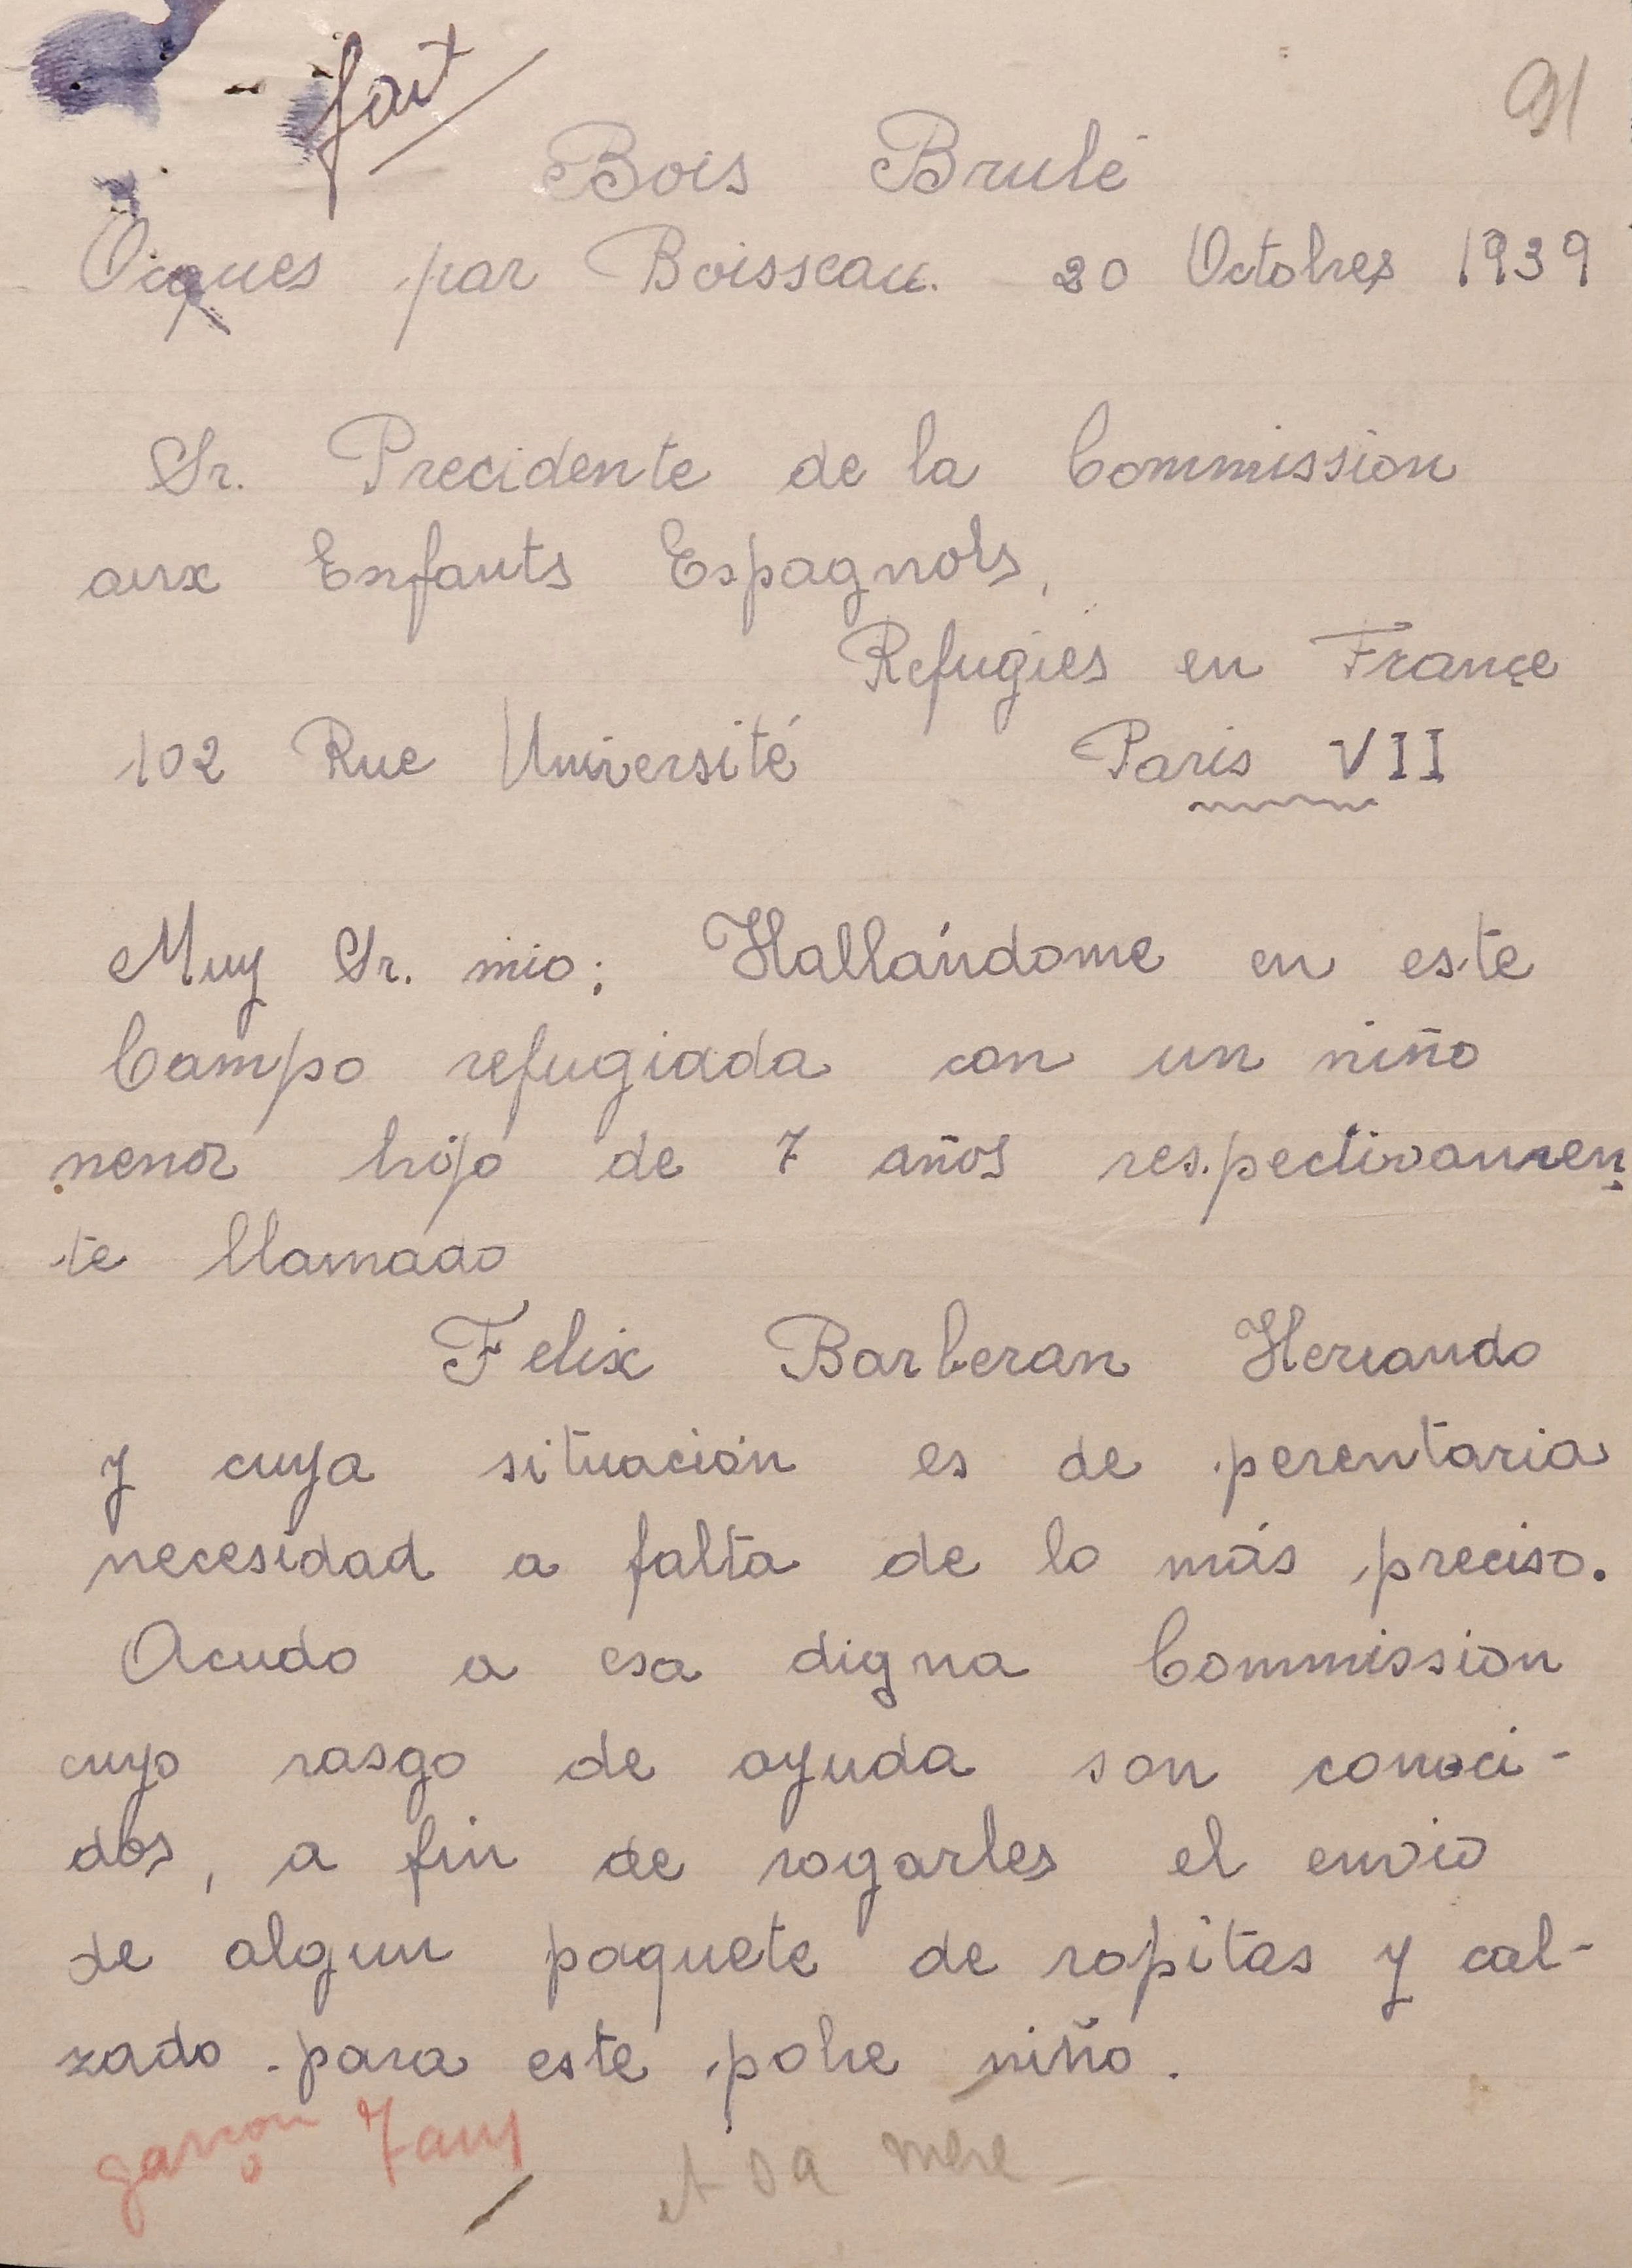 fait
91
Bois Brulé
Ocques par Boisseau. 20 Octobres 1939
Sr. Precidente de la Commission
aux Enfants Espagnols,
Refugies en France
102 Rue Université Paris VII
Muy Sr. mio: Hallándome en este
Campo refugiada con un niño
menor hijo de 7 años respectivamen
te llamado
Felix Barberan Hernando
y cuya situación es de perentaria
necesidad a falta de lo más preciso.
Acudo a esa digna Commission
cuyo rasgo de ayuda son conoci-
dos, a fin de rogarles el envio
de algun paquete de ropitas y cal-
zado para este pobre niño.
garçon 7 ans et sa mere